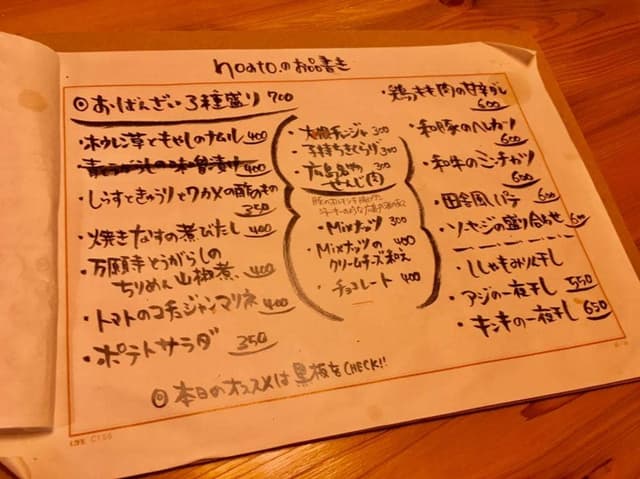 noato.のお品書き
◎おばんざい3種盛り 700
・ホウレン草ともやしのナムル 400
400
・しらすときゅうりとワカメの酢のもの
350
・焼きなすの煮びたし 400
・万願寺とうがらしの
ちりめん山椒煮. 400
・トマトのコチュジャンマリネ 400
・ポテトサラダ 350
チャンジャ 300
・子持ちきくらげ 300
・広島名物 300
せんじ肉
・Mixナッツ 300
・Mixナッツの 400
クリームチーズ和え
・チョコレート 400
・鶏もも肉の甘辛ダレ
600
・和豚のヘレカツ
600
・和牛のミンチカツ
600
・田舎風パテ 600
・ソーセージの盛り合わせ 600
・ししゃもみりん干し
・アジの一夜干し 550
・キンキの一夜干し 650
◎本日のオススメは黒板をCHECK!!
LIFE C156